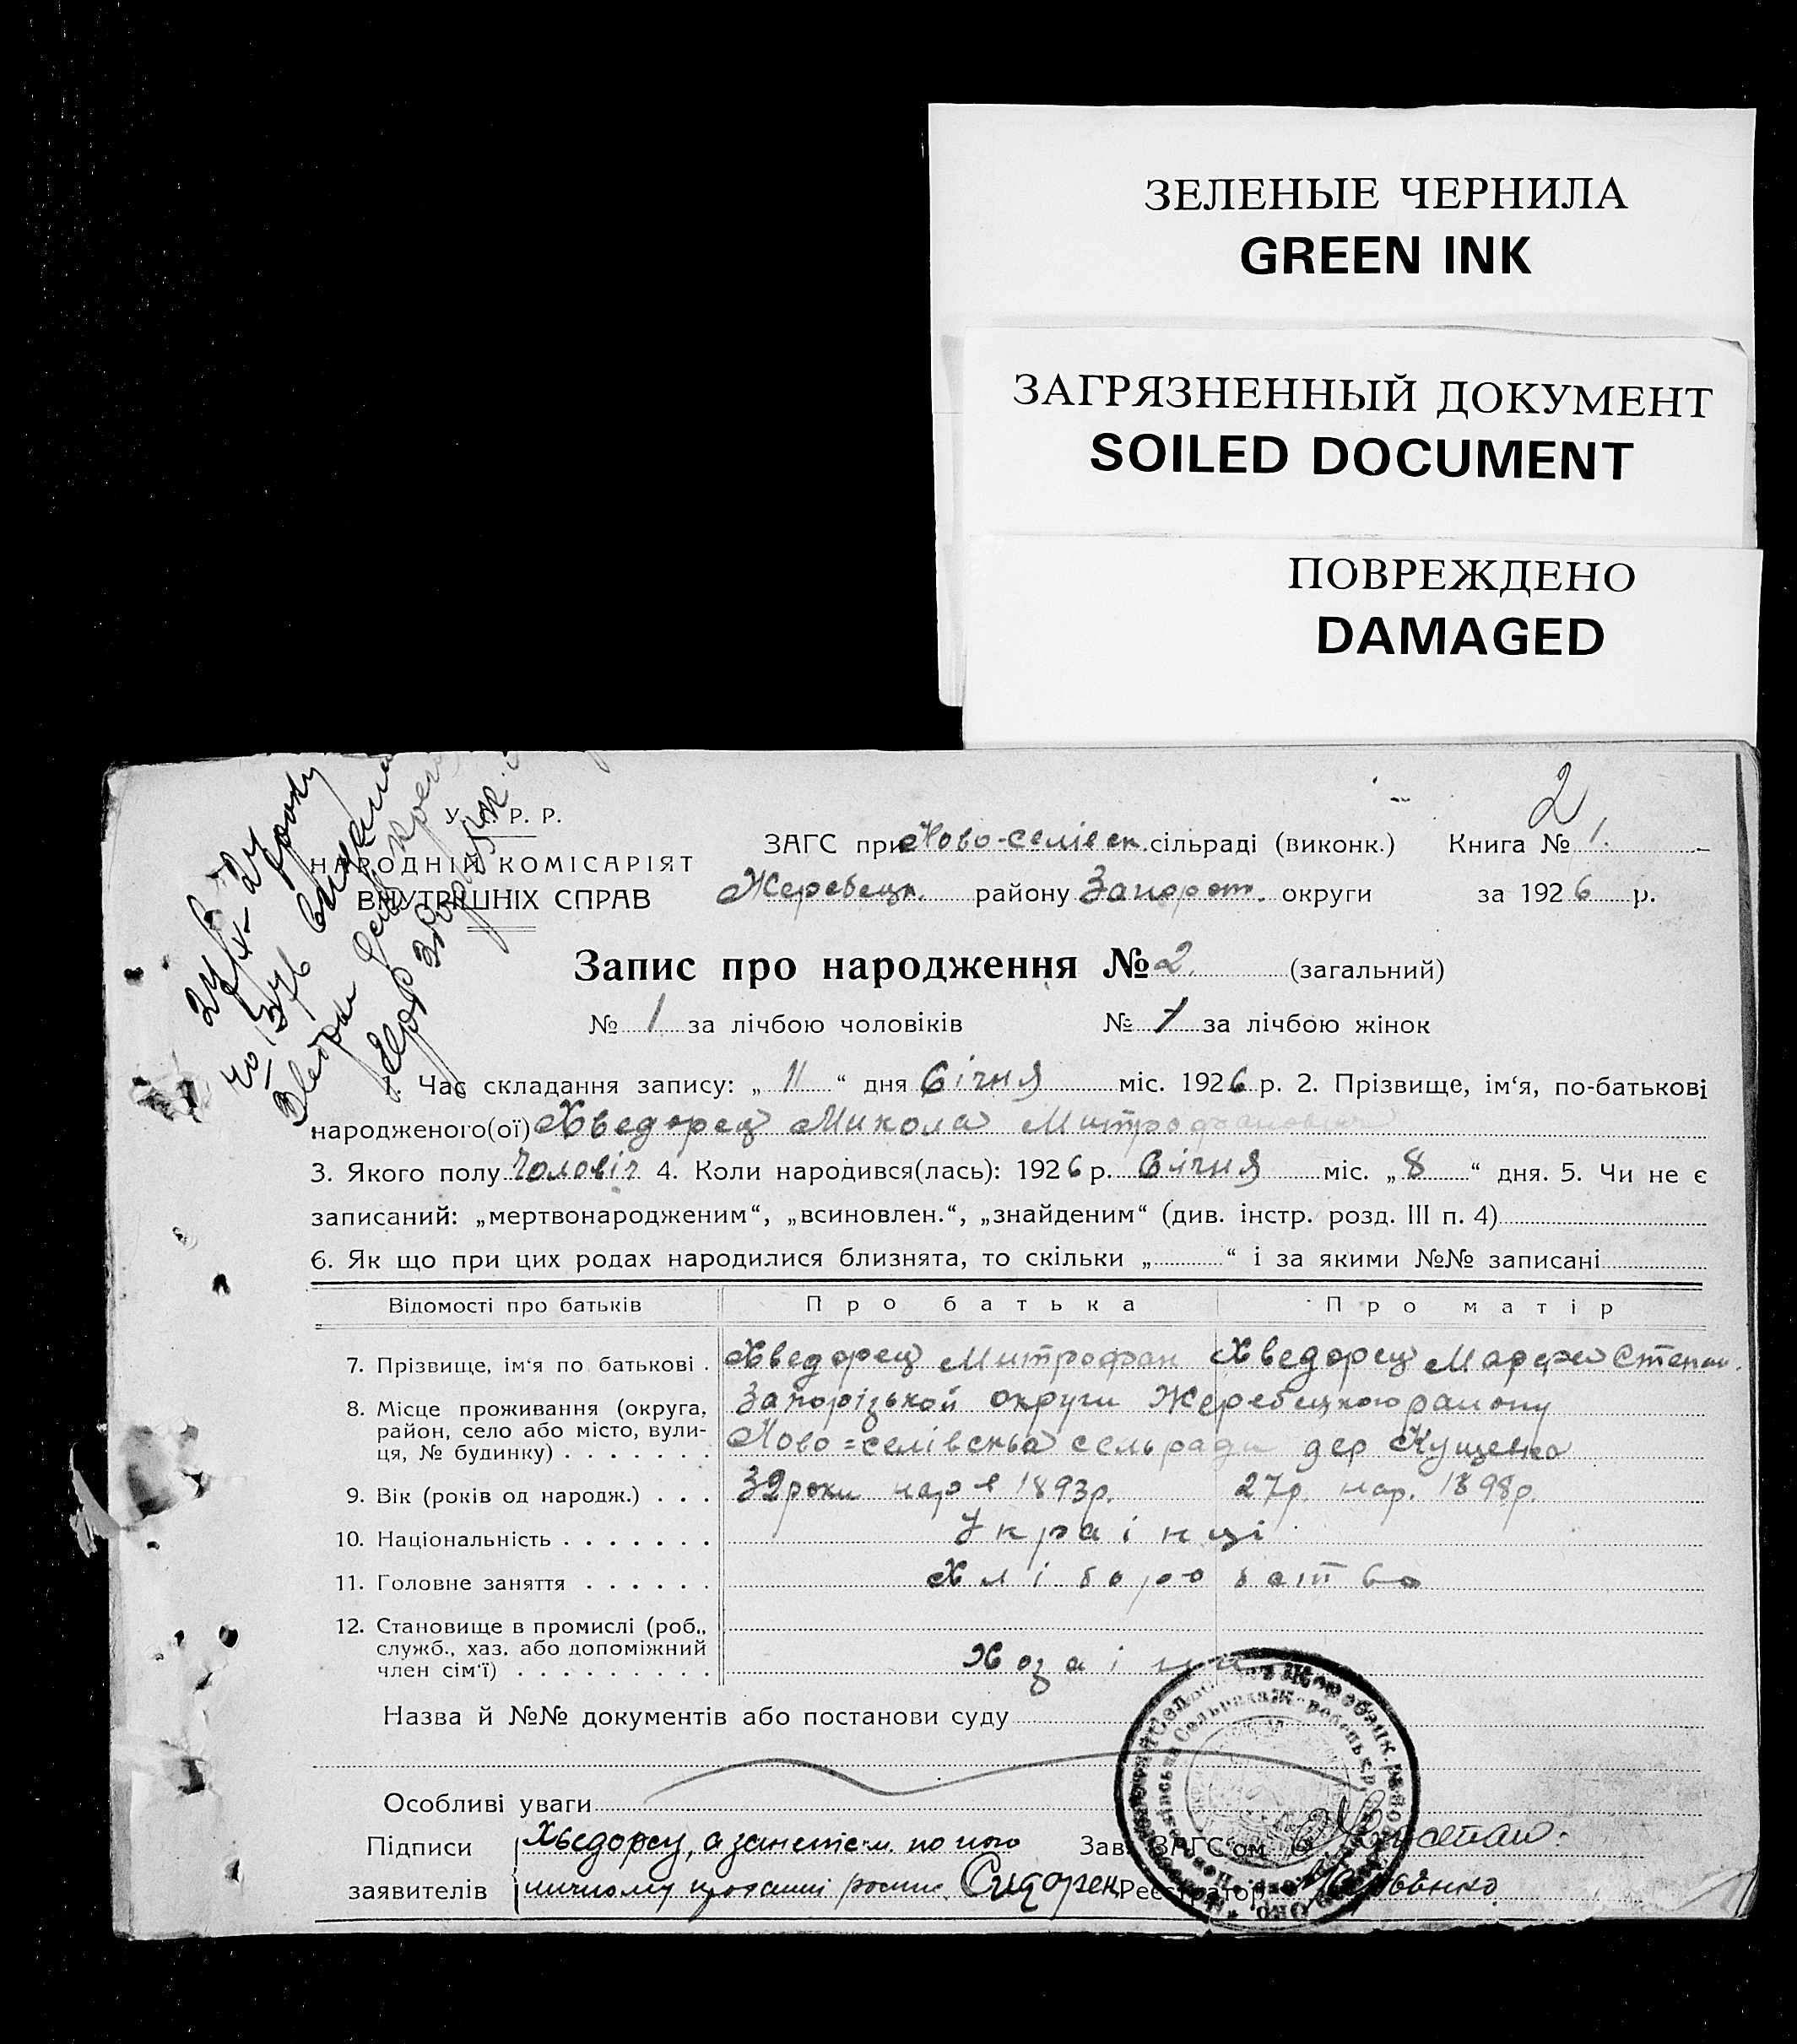 ЗЕЛЕНЫЕ ЧЕРНИЛА
GREEN INK
ЗАГРЯЗНЕННЫЙ ДОКУМЕНТ
SOILED DOCUMENT
ПОВРЕЖДЕНО
DAMAGED
2
У. Р. Р.
НАРОДНІЙ КОМІСАРІЯТ
ВНУТРІШНІХ СПРАВ
ЗАГС при Ново-селівськ. сільраді (виконк.) Книга № 1.
Жеребецк. району Запорож. округи за 1926 р.
Запис про народження № 2. (загальний)
№ 1 за лічбою чоловіків № за лічбою жінок
1. Час складання запису: „ 11 “ дня Січня міс. 1926 р. 2. Прізвище, ім‘я, по-батькові
народженого(ої) Хведорец Микола Митрофанович
3. Якого полу Чоловіч 4. Коли народився(лась): 1926 р. Січня міс. „ 8 “ дня. 5. Чи не є
записаний: „мертвонародженим“, „всиновлен.“, „знайденим“ (див. інстр. розд. III п. 4)
6. Як що при цих родах народилися близнята, то скільки „ “ і за якими №№ записані
Відомості про батьків Про батька Про матір
7. Прізвище, ім‘я по батькові . Хведорец Митрофан Хведорец Степан.
8. Місце проживання (округа, район, село або місто, вулиця, № будинку) . . . . . . . Запорізькой округи Жеребецкого району
Ново=селівська сельради дер Кущенко
9. Вік (років од народж.) . . . 32 роки нар в 1893р. 27р. нар. 1898р.
10. Національність . . . . . . . Українці
11. Головне заняття . . . . . . Хліборобство
12. Становище в промислі (роб., служб., хаз. або допоміжний член сім‘ї) . . . . . . . . . Хозаіни
Назва й №№ документів або постанови суду
Особливі уваги
Підписи Хведорец, а за по його Зав. ЗАГС‘ом
заявителів личному Сидорен Реєстратор